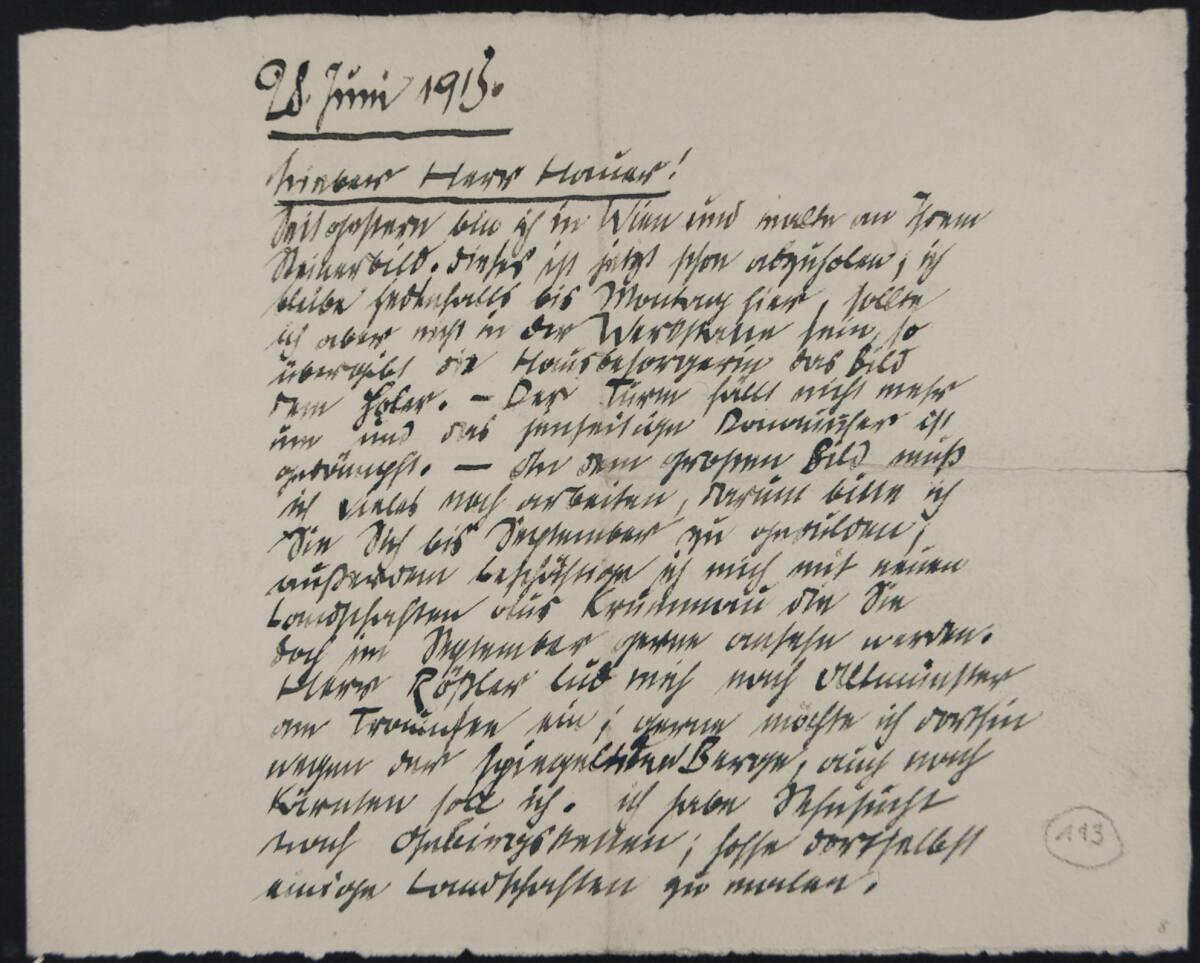 28. Juni 1913.
Lieber Herr Hauer!
Seit gestern bin ich in Wien und malte an Ihrem
Steinerbild. dieses ist jetzt schon abzuholen; ich
bleibe jedenfalls bis Montag hier, sollte
ich aber nicht in der Werkstatte sein, so
übergibt die Hausbesorgerin das Bild
dem Holer. – Der Turm fällt nicht mehr
um und das jenseitige Donauufer ist
gedämpft. – An dem großen Bild muß
ich vieles noch arbeiten, darum bitte ich
Sie Sich bis September zu gedulden;
außerdem beschäftige ich mich mit neuen
Landschaften aus Krummau die Sie
doch im September gerne ansehn werden.
Herr Rößler lud mich nach Altmünster
am Traunsee ein; gerne möchte ich dorthin
wegen der spiegelnden Berge, auch nach
Kärnten soll ich. ich habe Sehnsucht
nach Gebirgsketten; hoffe dortselbst
einige Landschaften zu malen.
113
8